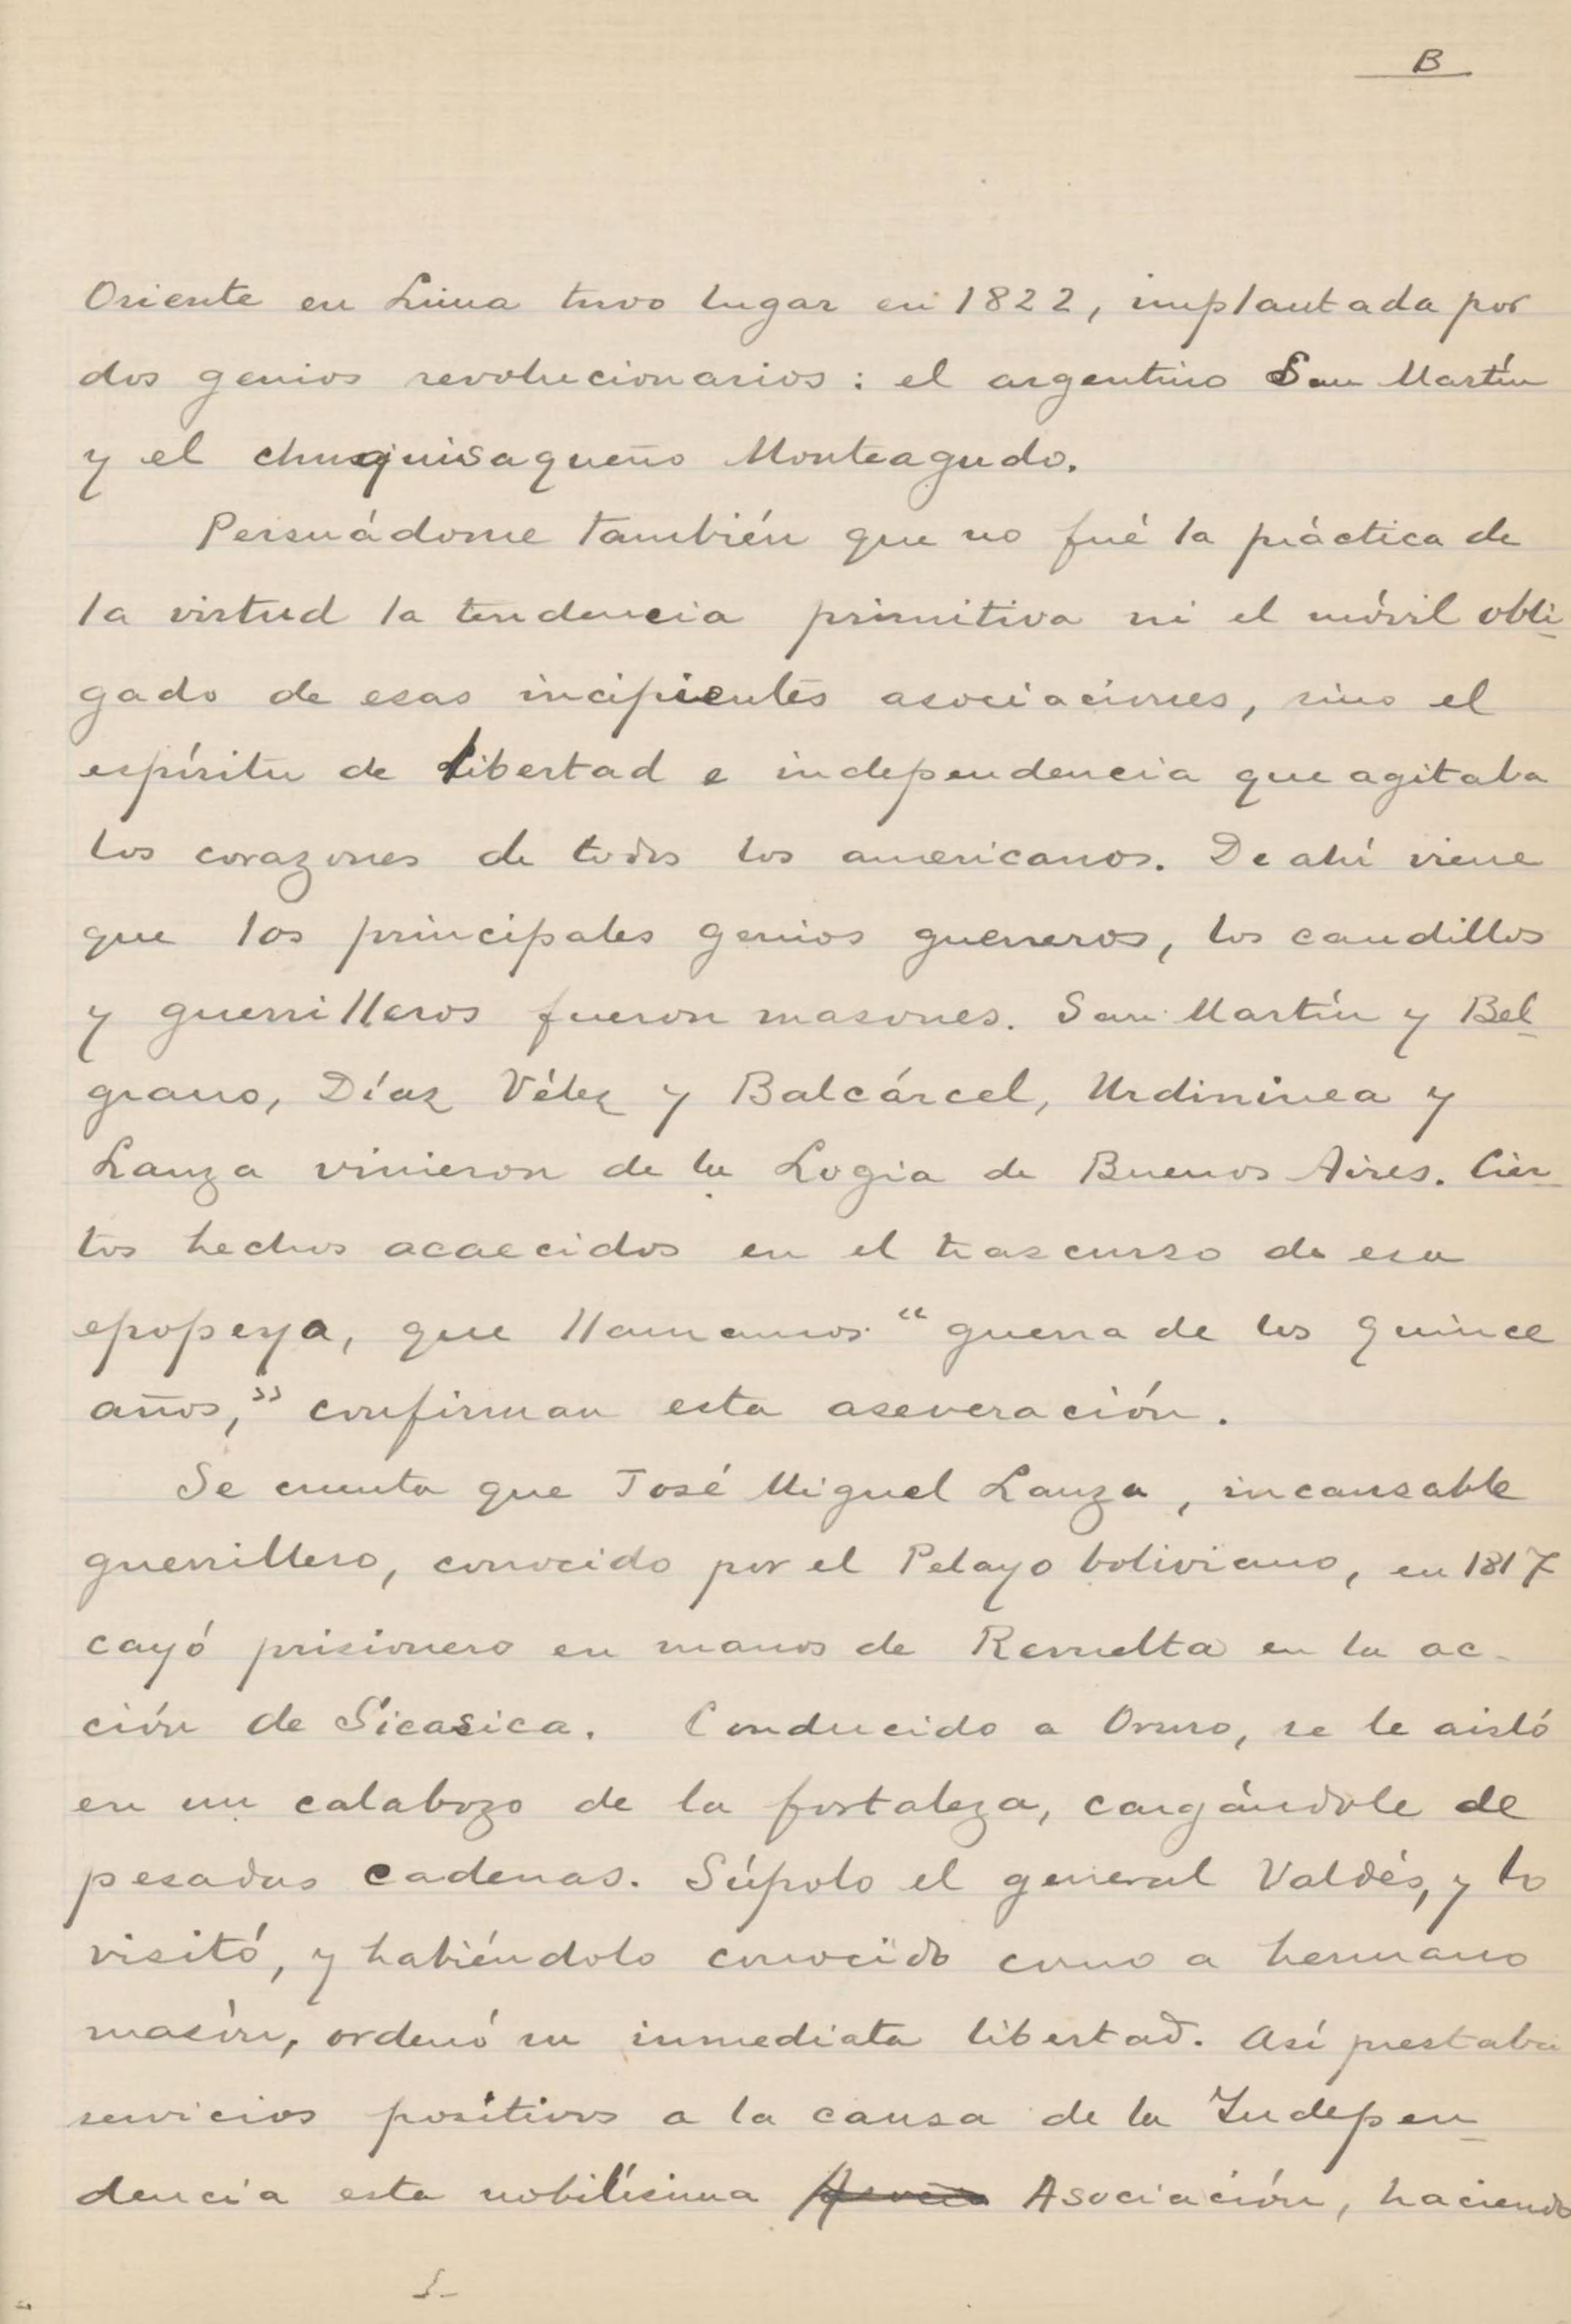 B
Oriente en Lima tuvo lugar en 1822, implantada por
dos genios revolucionarios: el argentino San Martín
y el chuquisaqueño Monteagudo.
Persuádome también que no fué la práctica de
la virtud la tendencia primitiva ni el móvil obli-
gado de esas incipientes asociaciones, sino el
espíritu de libertad e independencia que agitaba
los corazones de todos los americanos. De ahí viene
que los principales genios guerreros, los caudillos
y guerrilleros fueron masones. San Martín y Bel-
grano, Díaz Vélez y Balcárcel, Urdininea y
Lanza vinieron de la Logia de Buenos Aires. Cier-
tos hechos acaecidos en el trascurso de esa
epopeya, que llamamos "guerra de los quince
años," confirman esta aseveración.
Se cuenta que José Miguel Lanza, incansable
guerrillero, conocido por el Pelayo boliviano, en 1817
cayó prisionero en manos de Revuelta en la ac-
ción de Sicasica. Conducido a Oruro, se le aisló
en un calabozo de la fortaleza, cargándole de
pesadas cadenas. Súpolo el general Valdés, y lo
visitó, y habiéndolo conocido como a hermano
masón, ordenó su inmediata libertad. Así prestaba
servicios positivos a la causa de la Indepen-
dencia esta nobilísima Asociación, haciendo